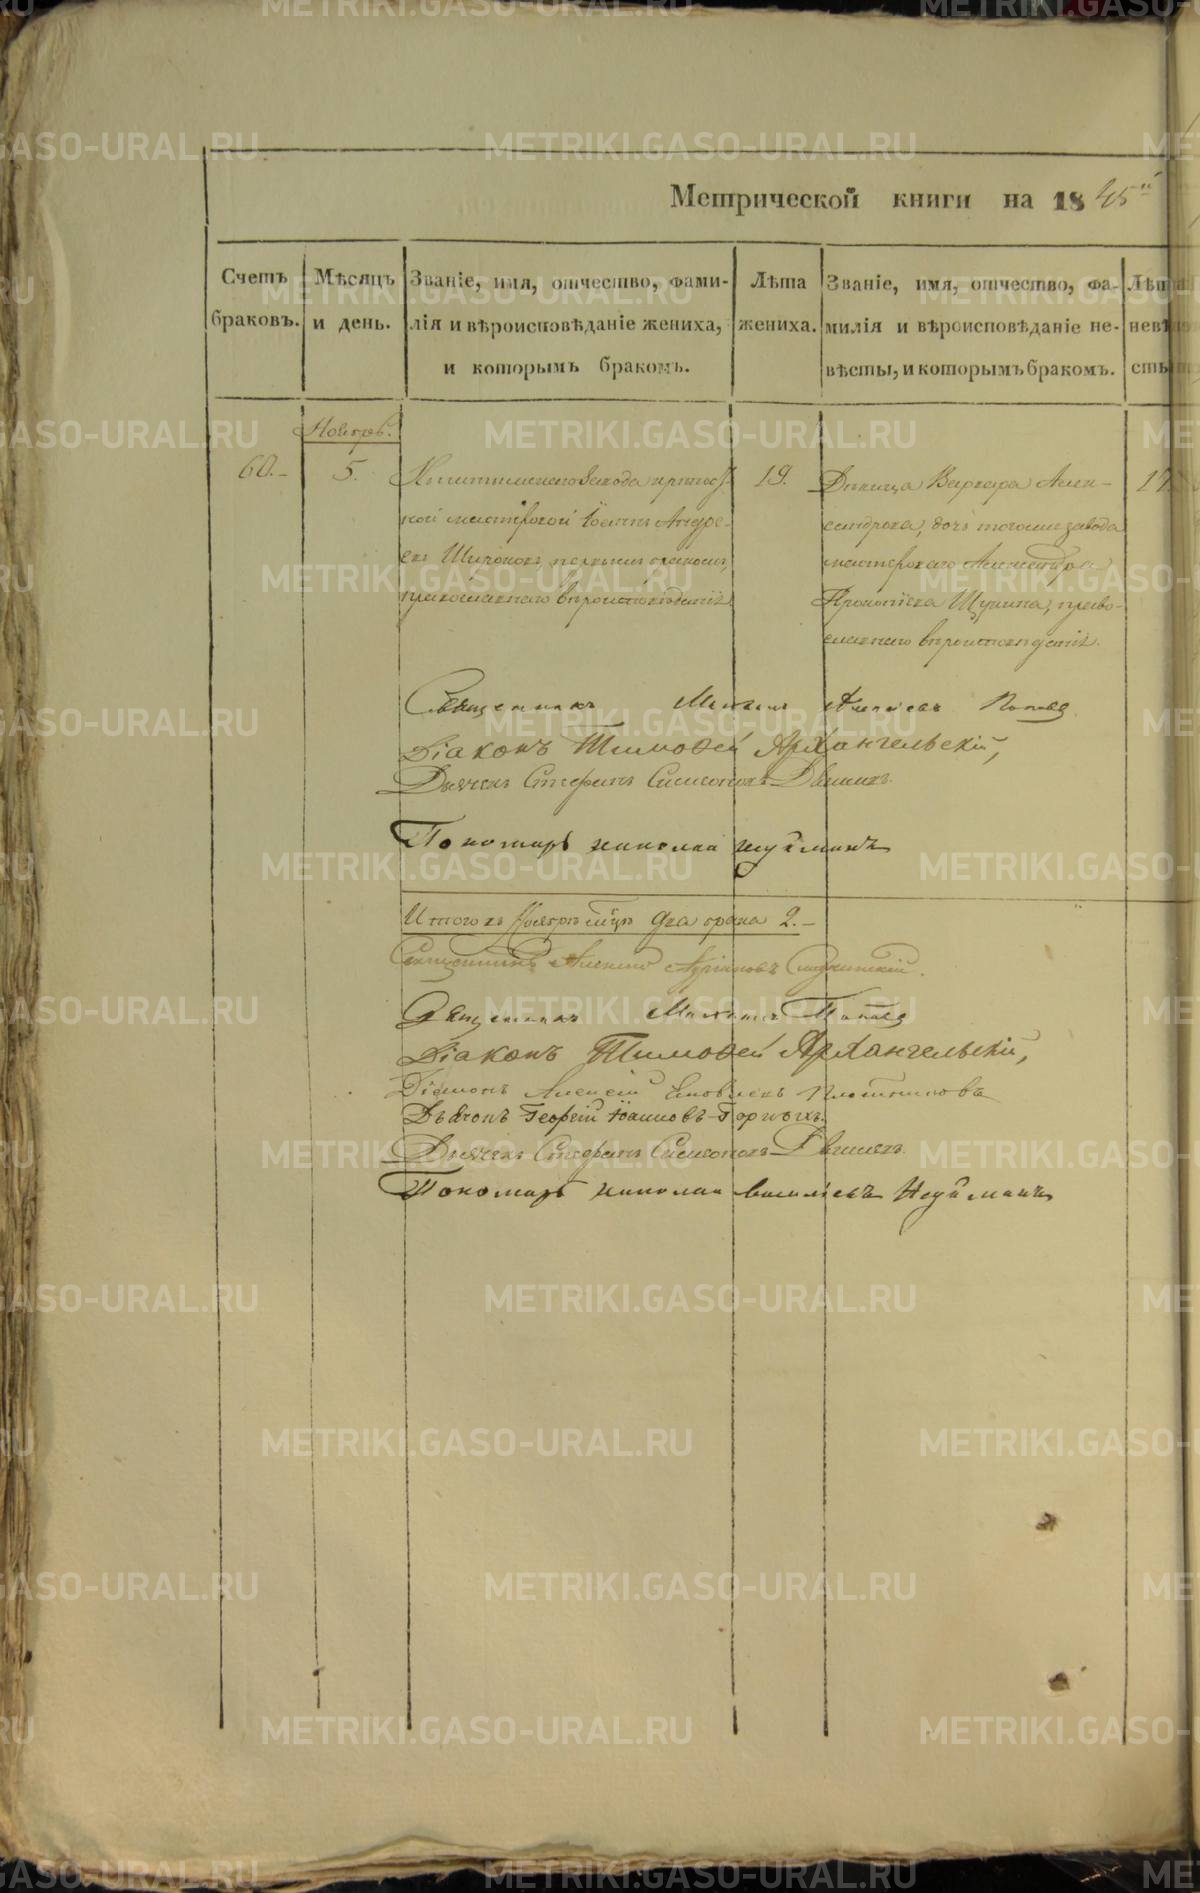 Метрической книги на 1845й
Счетъ браковъ.
Мѣсяцъ и день.
Званіе, имя, отчество, фами-
лія и вѣроисповѣданіе жениха,
и которымъ бракомъ.
Лѣта
жениха.
Званіе, имя, отчество, фа-
милія и вѣроисповѣданіе не-
вѣсты, и которымъ бракомъ.
Лѣта
невѣ
сты
Ноябрь.
60.
5.
завода
мастероваго Іоаннъ Андре-
евъ Широковъ, первымъ бракомъ,
православнаго вѣроисповѣданія.
19.
Дѣвица Варвара Алек-
сандрова, дочь тогоже завода
мастероваго Александра
Прокопіева Щукина, право-
славнаго вѣроисповѣданія.
17
Священникъ Михаилъ Алексѣевъ Поповъ
Діаконъ Тимофей Архангельскій,
Дьячекъ Стефанъ Симеоновъ
Пономарь Николай
Итого въ Ноябрѣ мцѣ два брака 2.
Священникъ Алексій
Священникъ Михаилъ Поповъ
Діаконъ Тимофей Архангельскій,
Діаконъ Алексій Яковлевъ Плотниковъ
Дьячокъ Георгій Іоанновъ Горныхъ.
Дьячекъ Стефанъ Симеоновъ
Пономарь Николай Васильевъ
METRIKI.GASO-URAL.RU